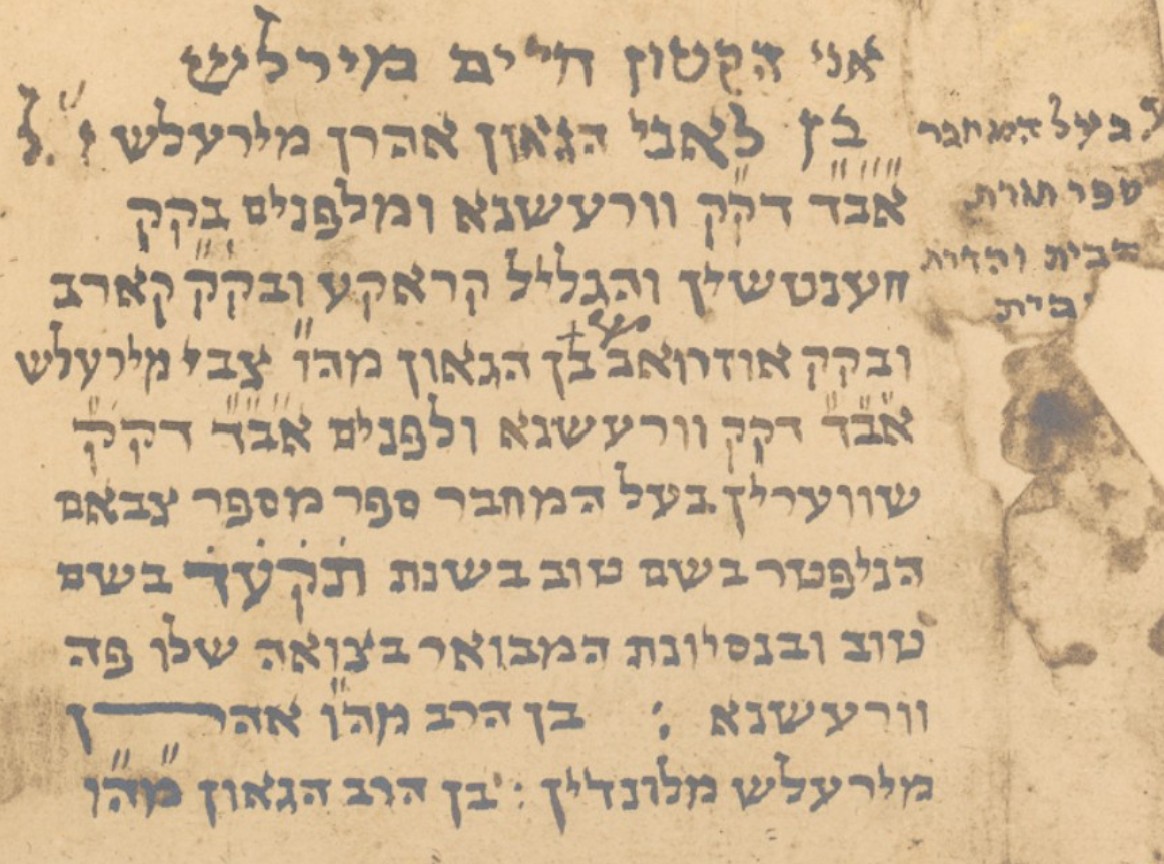 אני הקטון חיים מירלש
בן לאבי הגאון אהרן מירעלש ז״ל
אב״ד דק״ק וורעשנא ומלפנים בקק
חענטשין והגליל קראקע ובק״ק קארב
ובקק אודרואב בן הגאון מהו״ צבי מירעלש
אב״ד דקק וורעשנא ולפנים אב״ד דק״ק
שווערין בעל המחבר ספר מספר צבאם
הנלפטר בשם טוב בשנת תקעד בשם
טוב ובנסיונת המבואר בצואה שלו פה
וורעשנא : בן הרב מהו״ אהרן
מירעלש מלונדין : בן הרב הגאון מה״ו
בעל המחבר
ספר תורת
הבית והדות
בית